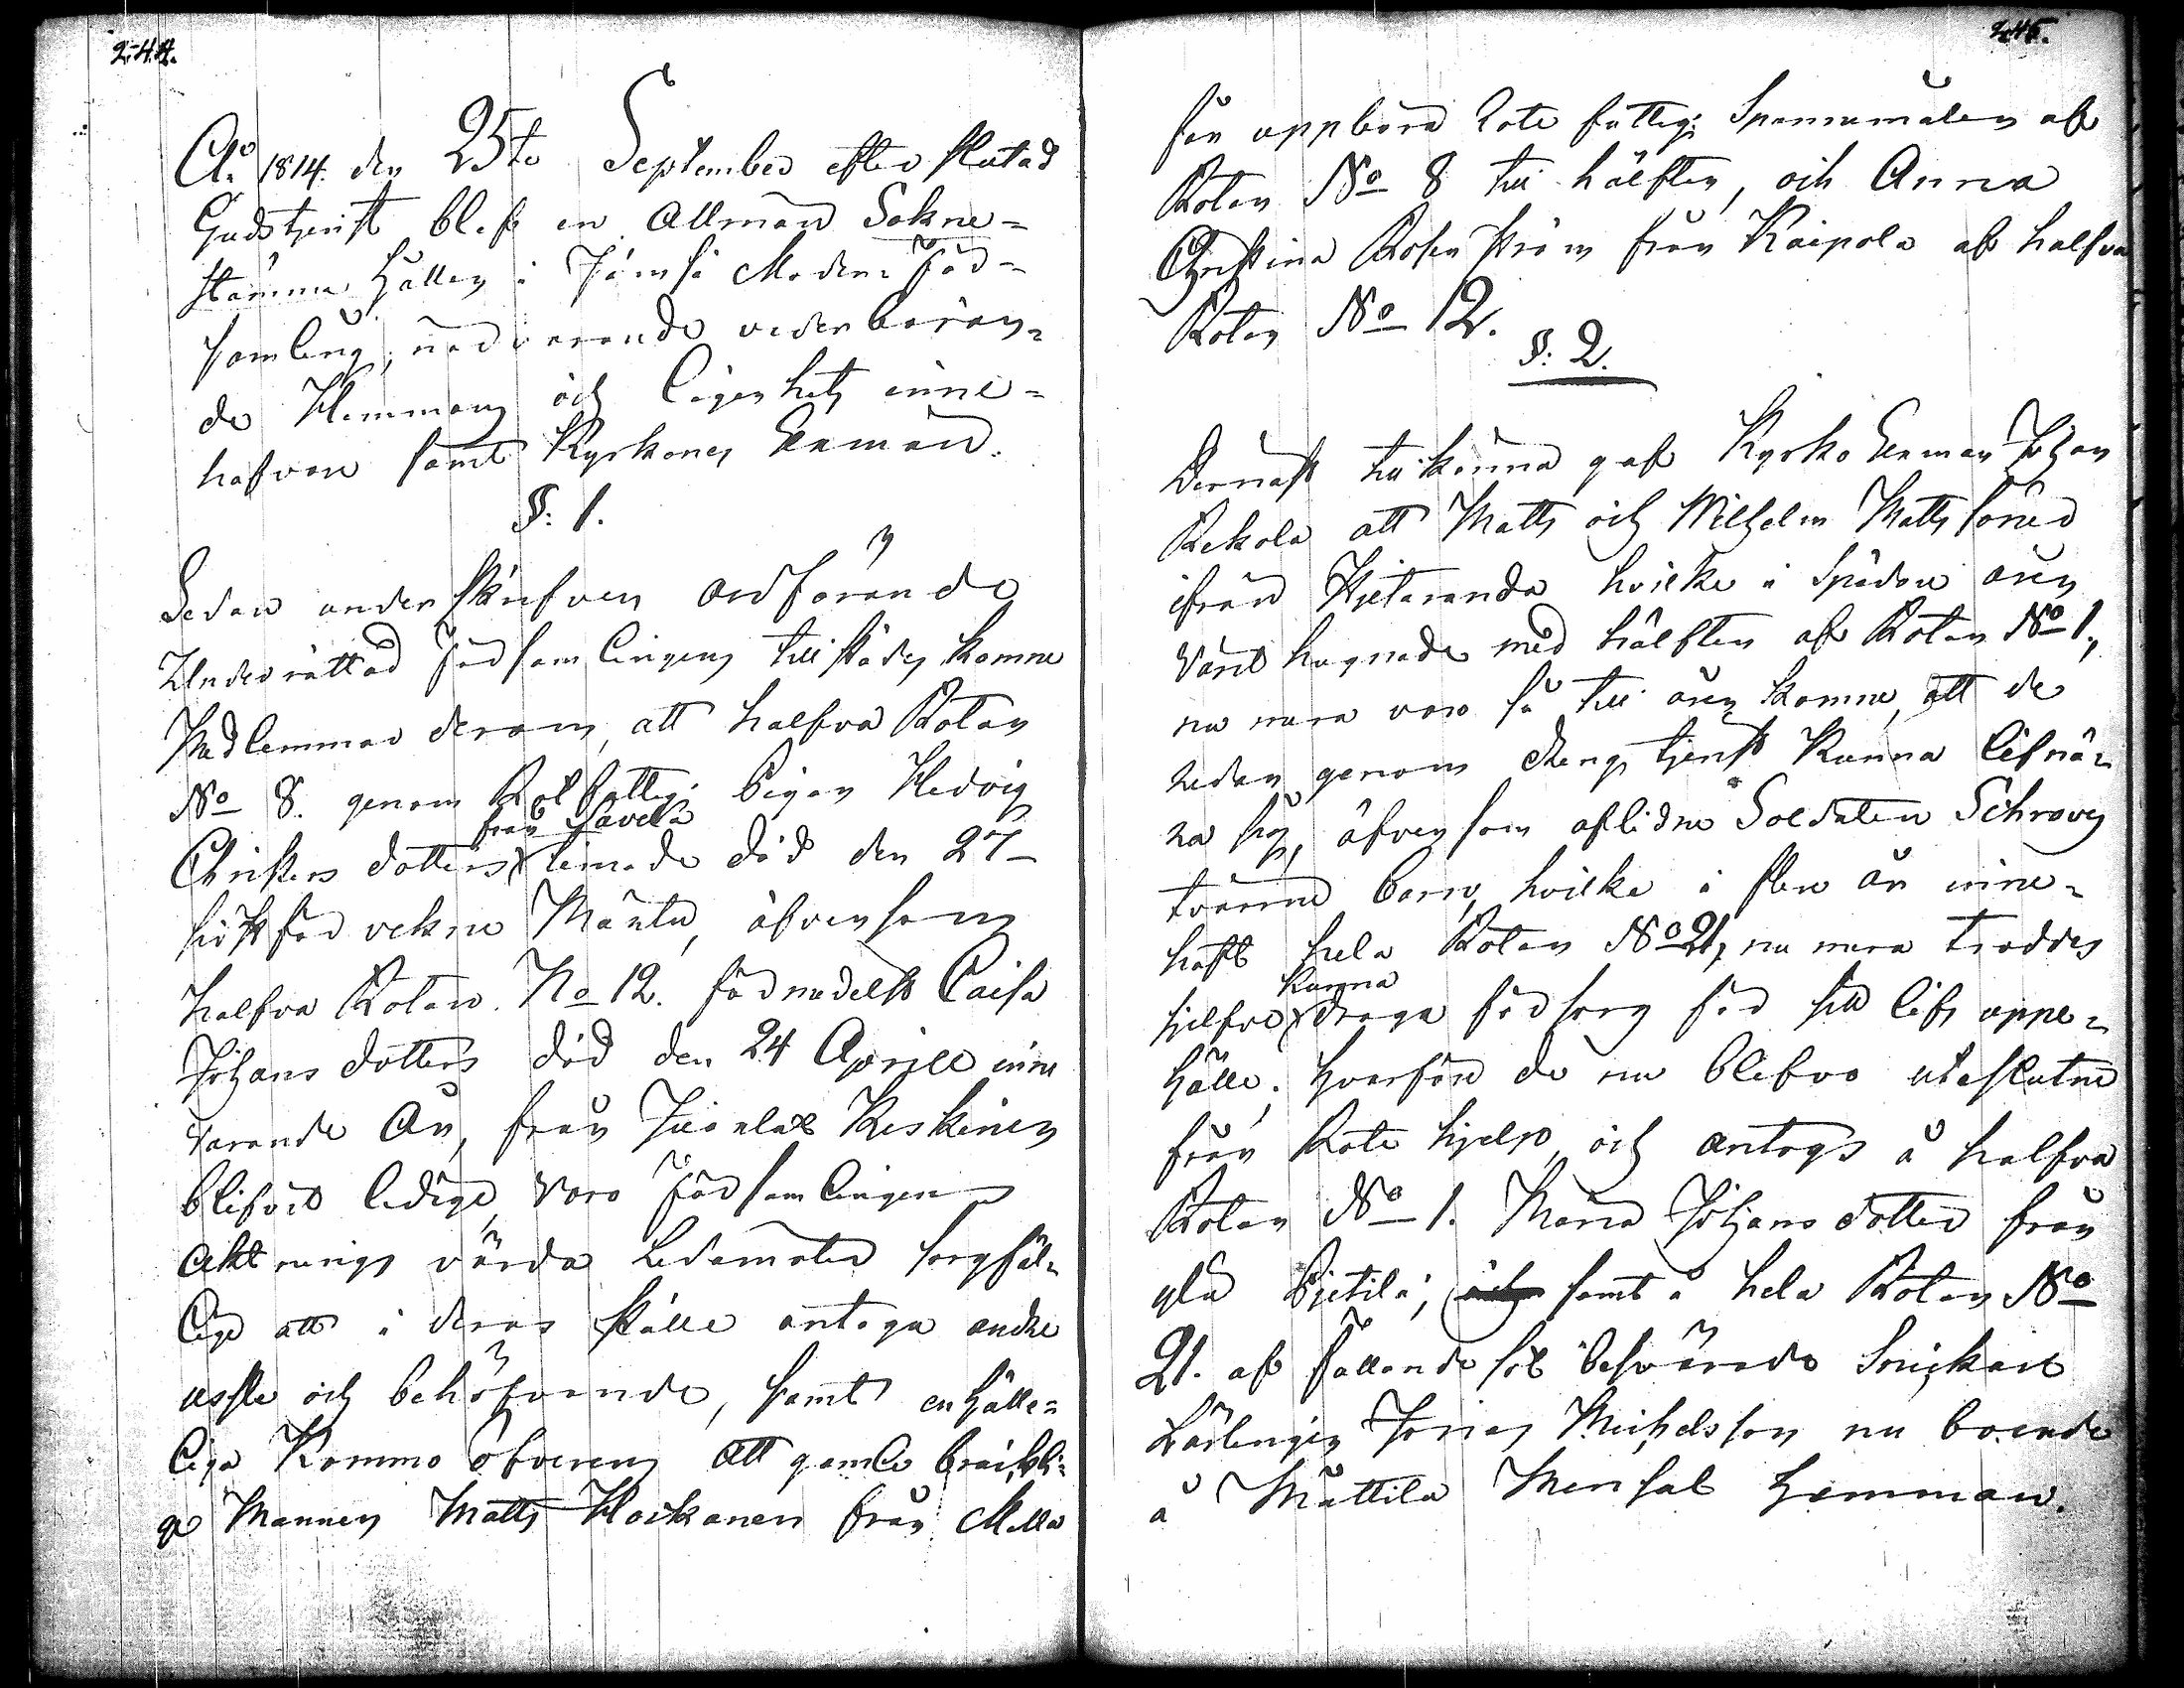 244.
Ao 1814. den 25te September efter slutad
Gudstjenst blef en Allmän Sokne-
stämma hållen i Jämsä Moder För-
samling, närvarande vederböran-
de Hemmans och Lägenhets inne-
hafvare samt Kyrkones Sexmän.
§: 1.
Sedan underskrifven Ordförande
Underrättad Församlingens tillstädes komne
Medlemmar derom, att halfva Rotan
No 8. genom Rotfattig: Pigan Hedvig
från Savela
Christers dotters timade död den 27
sistförvekne Martii, äfvensom
halfva Rotan No 12. förmedelst Caisa
Johans dotters död den 24 Aprill inne
varande År, från Juokslax Keskinen
blifvit ledige, voro Församlingens
Aktnings värda Ledamöter sorgfäl-
lige att i deras ställe antaga andre
usle och behöfvande, samt enhälle-
liga Kommo öfverens Att gamle bräckli-
ge Mannen Matts Hoikanen från Mella
245.
får uppbära Rote fattig: Spannmålen af
Rotan No 8 till hälften, och Anna
Christina Rosenström från Kaipola af halfva
Rotan No 12.
§: 2.
Dernäst tillkänna gaf Kyrko Sexman Johan
Rekola att Matts och Wilhelm Matts söner
ifrån Hjetaranda hvilke i spädare åren
varit hugnade med hälften af Rotan No 1.,
nu mera voro så till åren komne, att de
redan genom drengs tjenst kunna lifnä-
ra sig, äfvensom aflidne Soldaten Schrovs
tvänne barn, hvilke i flere år inne-
haft hela Rotan No 21, nu mera troddes
kunna
sjelfve draga försorg för sitt lifs uppe-
hälle; hvarföre de nu blefvo uteslutne
från Rote hjelp, och antogs å halfva
Rotan No 1. Maria Johans dotter från
yla Pjetilä; samt å hela Rotan No
21. af fallande sot besvärade Snickare
Lärlingen Jonas Michelsson nu boende
å Mattila Mensal Hemman.